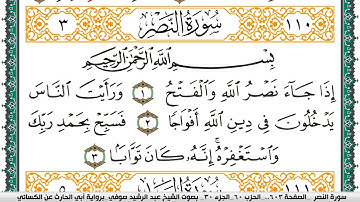 ١١٠ سُورَةُ النَّصْرِ ٣
بِسْمِ اللَّهِ الرَّحْمَٰنِ الرَّحِيمِ
إِذَا جَآءَ نَصْرُ اللَّهِ وَالْفَتْحُ ١ وَرَأَيْتَ النَّاسَ
يَدْخُلُونَ فِي دِينِ اللَّهِ أَفْوَاجًا ٢ فَسَبِّحْ بِحَمْدِ رَبِّكَ
وَاسْتَغْفِرْهُ إِنَّهُ كَانَ تَوَّابًا ٣
١١١
٥
سورة النصر _ الصفحة ٦٠٣ _ الحزب ٦٠ _ الجزء ٣٠ _ بصوت الشيخ عبد الرشيد صوفي _ برواية أبي الحارث عن الكسائي